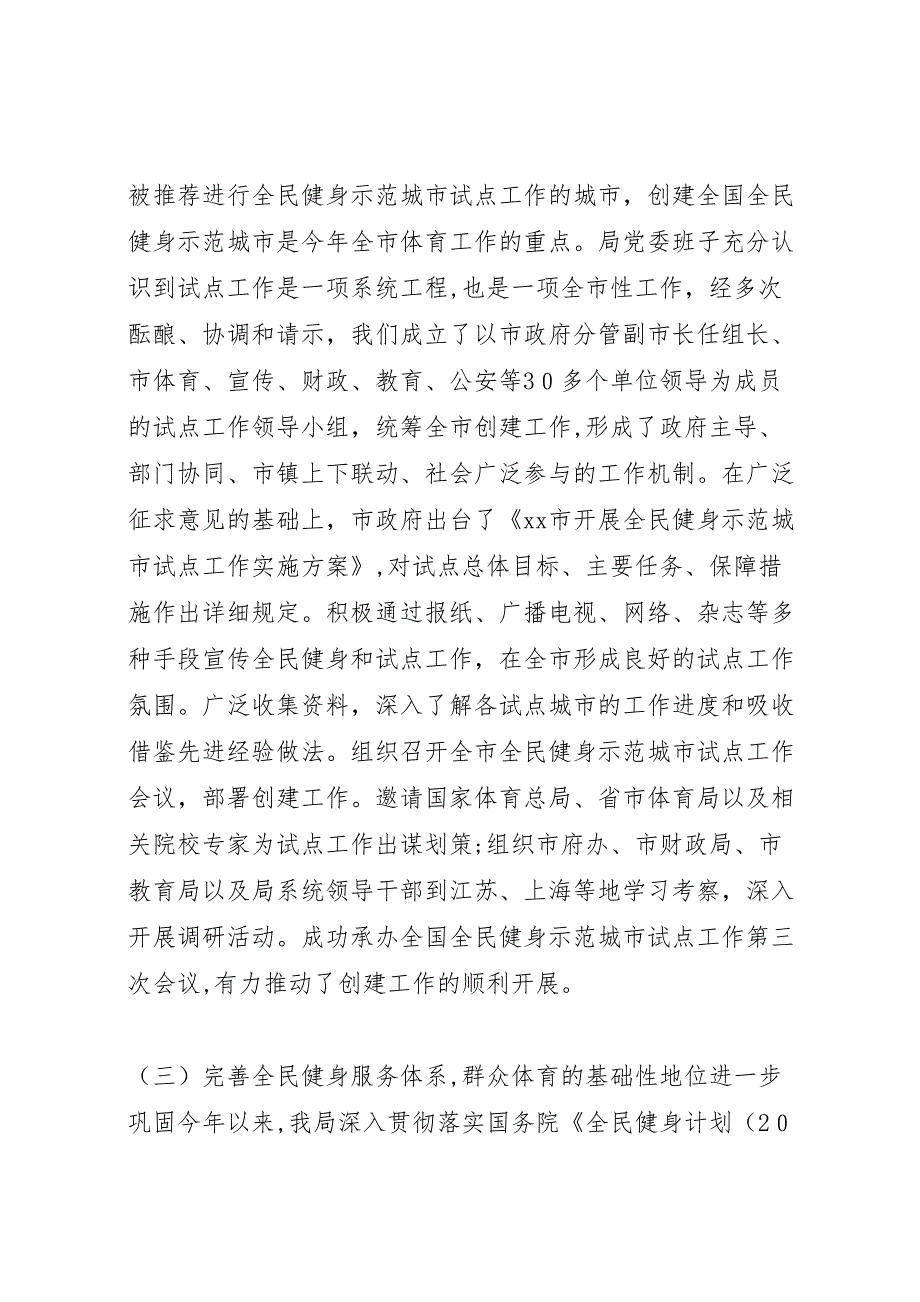 被推荐进行全民健身示范城市试点工作的城市，创建全国全民
健身示范城市是今年全市体育工作的重点。局党委班子充分认
识到试点工作是一项系统工程,也是一项全市性工作，经多次
酝酿、协调和请示，我们成立了以市政府分管副市长任组长、
市体育、宣传、财政、教育、公安等30多个单位领导为成员
的试点工作领导小组，统筹全市创建工作,形成了政府主导、
部门协同、市镇上下联动、社会广泛参与的工作机制。在广泛
征求意见的基础上，市政府出台了《xx市开展全民健身示范城
市试点工作实施方案》,对试点总体目标、主要任务、保障措
施作出详细规定。积极通过报纸、广播电视、网络、杂志等多
种手段宣传全民健身和试点工作，在全市形成良好的试点工作
氛围。广泛收集资料，深入了解各试点城市的工作进度和吸收
借鉴先进经验做法。组织召开全市全民健身示范城市试点工作
会议，部署创建工作。邀请国家体育总局、省市体育局以及相
关院校专家为试点工作出谋划策;组织市府办、市财政局、市
教育局以及局系统领导干部到江苏、上海等地学习考察，深入
开展调研活动。成功承办全国全民健身示范城市试点工作第三
次会议,有力推动了创建工作的顺利开展。
（三）完善全民健身服务体系,群众体育的基础性地位进一步
巩固今年以来,我局深入贯彻落实国务院《全民健身计划（20